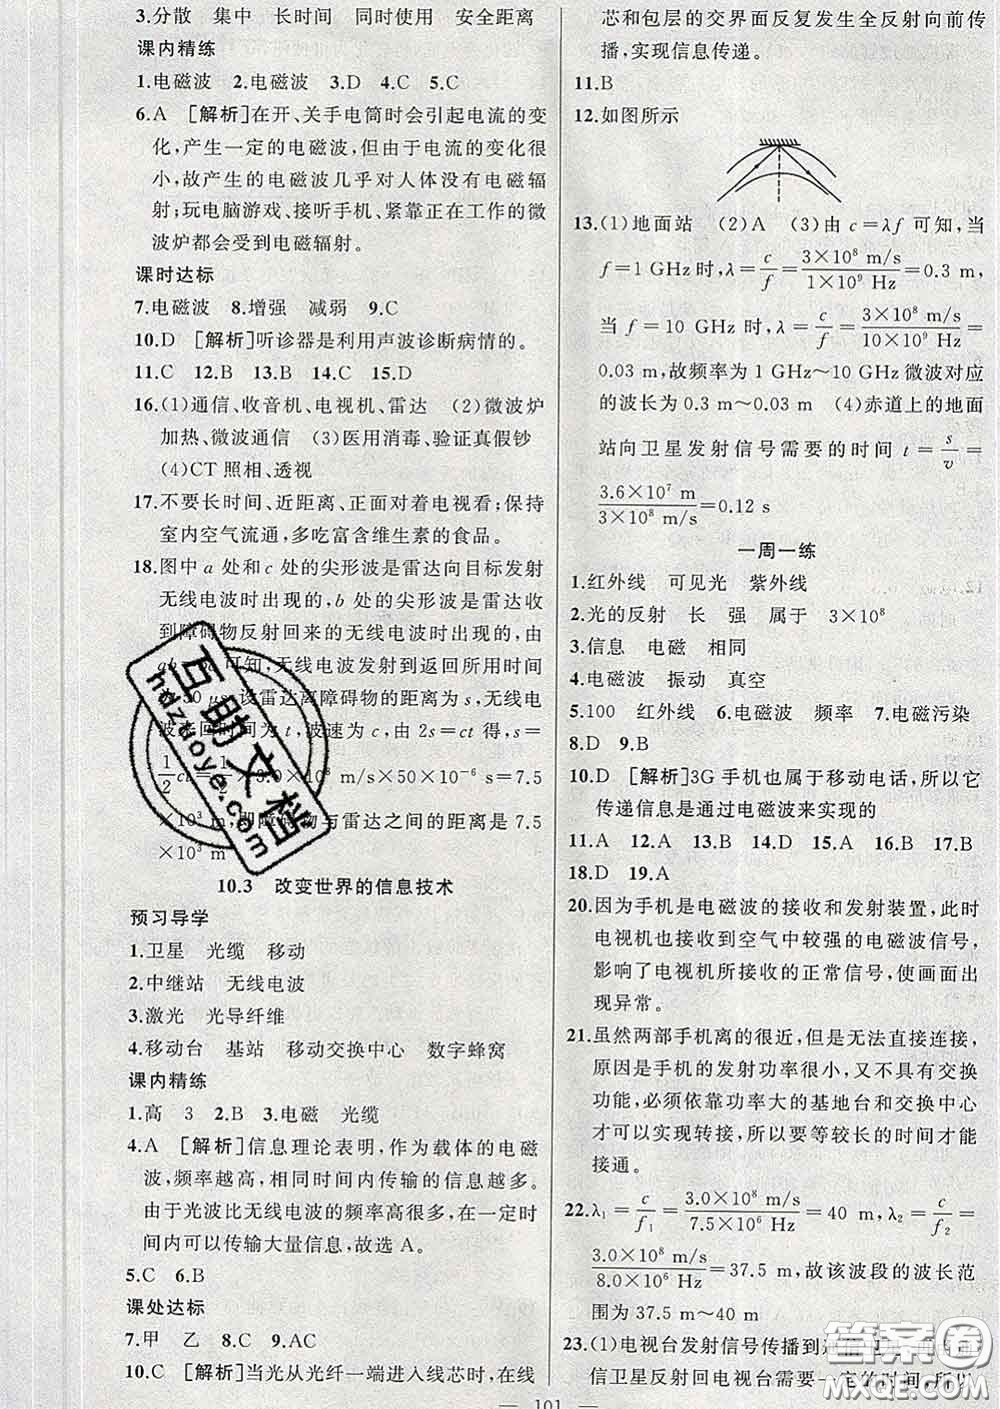 3.分散　集中　长时间　同时使用　安全距离
课内精练
1.电磁波　2.电磁波　3.D　4.C　5.C
6.A　[解析]在开、关手电筒时会引起电流的变
化,产生一定的电磁波,但由于电流的变化很
小,故产生的电磁波几乎对人体没有电磁辐
射;玩电脑游戏、接听手机、紧靠正在工作的微
波炉都会受到电磁辐射。
课时达标
7.电磁波　8.增强　减弱　9.C
10.D　[解析]听诊器是利用声波诊断病情的。
11.C　12.B　13.B　14.C　15.D
16.(1)通信、收音机、电视机、雷达　(2)微波炉
加热、微波通信　(3)医用消毒、验证真假钞
(4)CT照相、透视
17.不要长时间、近距离、正面对着电视看;保持
室内空气流通,多吃富含维生素的食品。
18.图中a处和c处的尖形波是雷达向目标发射
无线电波时出现的,b处的尖形波是雷达收
到障碍物反射回来的无线电波时出现的,由
可知,无线电波发射到返回所用时间
50 μs,设雷达离障碍物的距离为s,无线电
波来回时间为t,波速为c,由2s=ct得,s=
1/2 ct=1/2×3.0×10⁸ m/s×50×10⁻⁶ s=7.5
×10³ m,即障碍物与雷达之间的距离是7.5
×10³ m
10.3　改变世界的信息技术
预习导学
1.卫星　光缆　移动
2.中继站　无线电波
3.激光　光导纤维
4.移动台　基站　移动交换中心　数字蜂窝
课内精练
1.高　3　2.B　3.电磁　光缆
4.A　[解析]信息理论表明,作为载体的电磁
波,频率越高,相同时间内传输的信息越多。
由于光波比无线电波的频率高很多,在一定时
间内可以传输大量信息,故选A。
5.C　6.B
课处达标
7.甲　乙　8.C　9.AC
10.C　[解析]当光从光纤一端进入线芯时,在线
芯和包层的交界面反复发生全反射向前传
播,实现信息传递。
11.B
12.如图所示
13.(1)地面站　(2)A　(3)由c=λf可知,当
f=1 GHz时,λ=c/f=3×10⁸ m/s/1×10⁹ Hz=0.3 m,
当f=10 GHz时,λ=c/f=3×10⁸ m/s/10×10⁹ Hz=
0.03 m,故频率为1 GHz～10 GHz微波对应
的波长为0.3 m～0.03 m　(4)赤道上的地面
站向卫星发射信号需要的时间t=s/v=
3.6×10⁷ m/3×10⁸ m/s=0.12 s
一周一练
1.红外线　可见光　紫外线
2.光的反射　长　强　属于　3×10⁸
3.信息　电磁　相同
4.电磁波　振动　真空
5.100　红外线　6.电磁波　频率　7.电磁污染
8.D　9.B
10.D　[解析]3G手机也属于移动电话,所以它
传递信息是通过电磁波来实现的
11.A　12.A　13.A　14.D　15.A　16.B　17.B
18.D　19.A
20.因为手机是电磁波的接收和发射装置,此时
电视机也接收到空气中较强的电磁波信号,
影响了电视机所接收的正常信号,使画面出
现异常。
21.虽然两部手机离的很近,但是无法直接连接,
原因是手机的发射功率很小,又不具有交换
功能,必须依靠功率大的基地台和交换中心
才可以实现转接,所以要等较长的时间才能
接通。
22.λ₁=c/f₁=3.0×10⁸ m/s/7.5×10⁶ Hz=40 m,λ₂=c/f₂=
3.0×10⁸ m/s/8.0×10⁶ Hz=37.5 m,故该波段的波长范
围为37.5 m～40 m
23.(1)电视台发射信号传播到通信卫
信卫星反射回电视台需要一定的时间,所以
— 101 —
互助文档
hdzuoye.com
答案圈
MXQE.COM